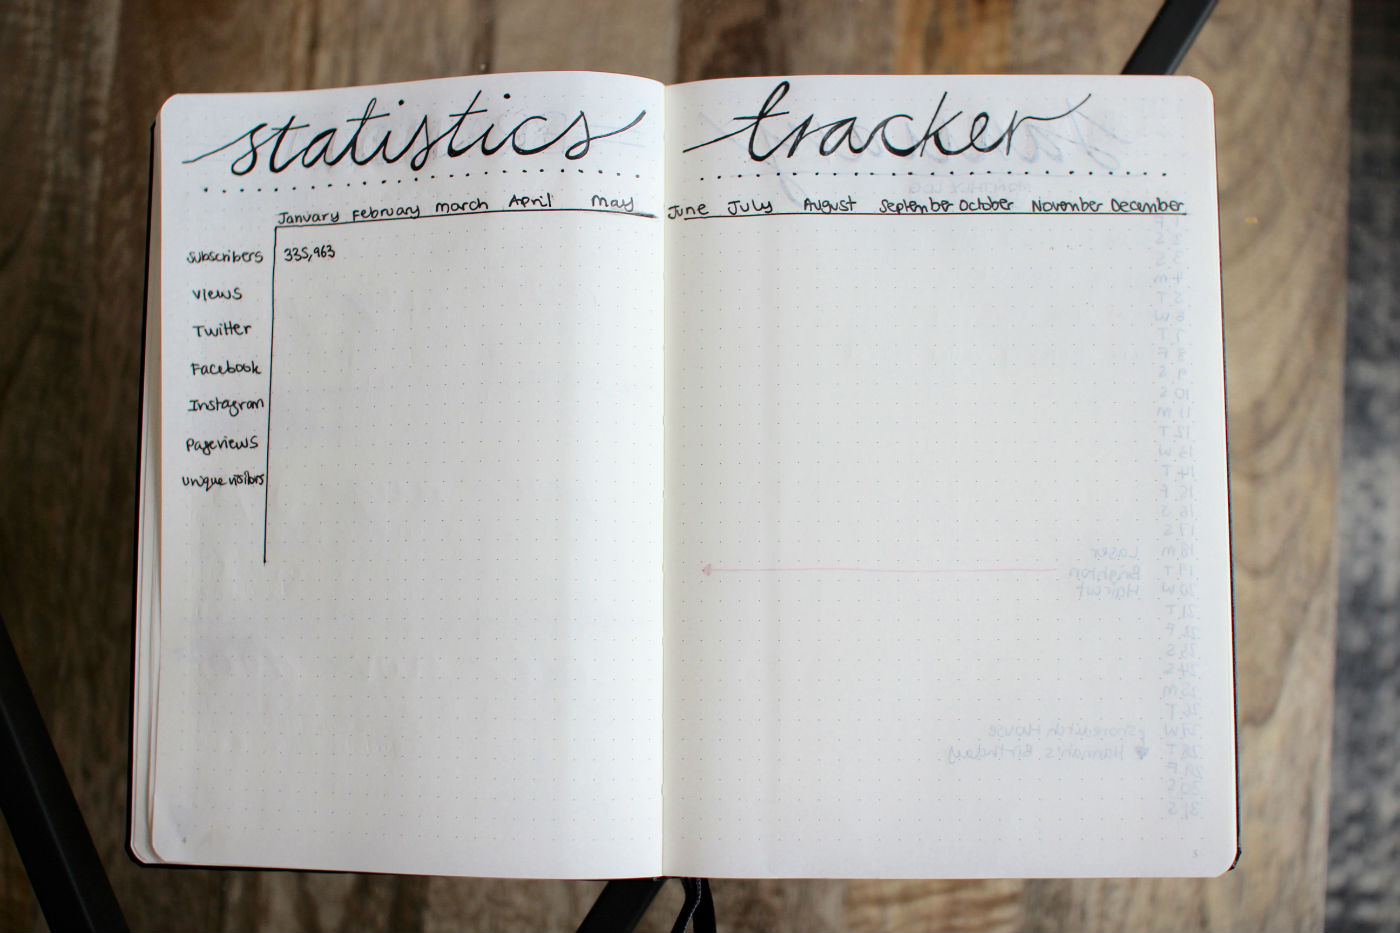 statistics tracker
January February March April May June July August September October November December
Subscribers 335,963
Views
Twitter
Facebook
Instagram
Pageviews
Unique visitors